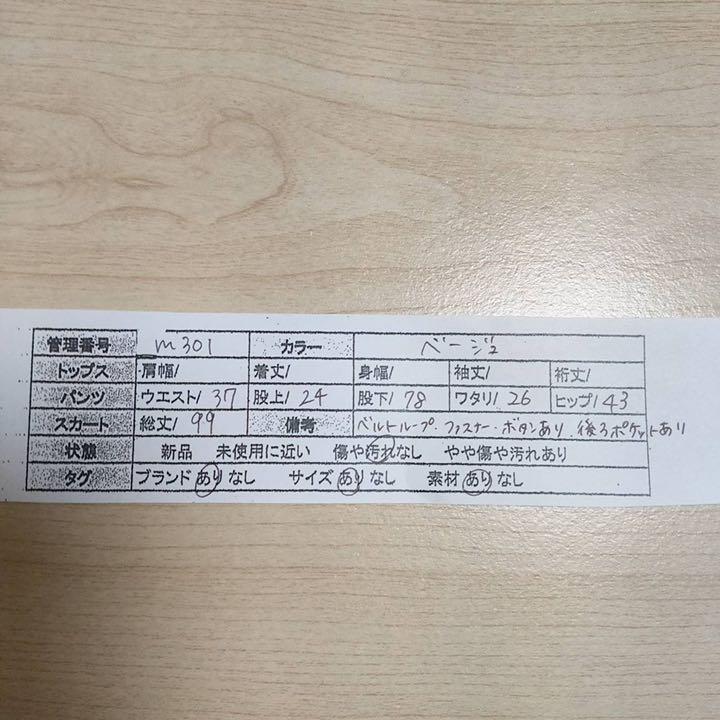 管理番号 m301 カラー ベージュ
トップス 肩幅/ 着丈/ 身幅/ 袖丈/ 裄丈/
パンツ ウエスト/ 37 股上/ 24 股下/ 78 ワタリ/ 26 ヒップ/ 43
スカート 総丈/ 99 備考 ベルトループ・ファスナー・ボタンあり．後ろポケットあり
状態 新品 未使用に近い 傷や汚れなし やや傷や汚れあり
タグ ブランド あり なし サイズ あり なし 素材 あり なし